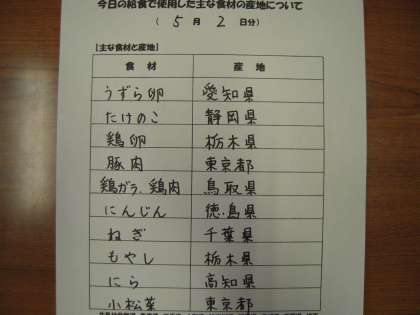 今日の給食で使用した主な食材の産地について
( 5 月 2 日分)
[主な食材と産地]
食材 産地
うずら卵 愛知県
たけのこ 静岡県
鶏卵 栃木県
豚肉 東京都
鶏ガラ、鶏肉 鳥取県
にんじん 徳島県
ねぎ 千葉県
もやし 栃木県
にら 高知県
小松菜 東京都